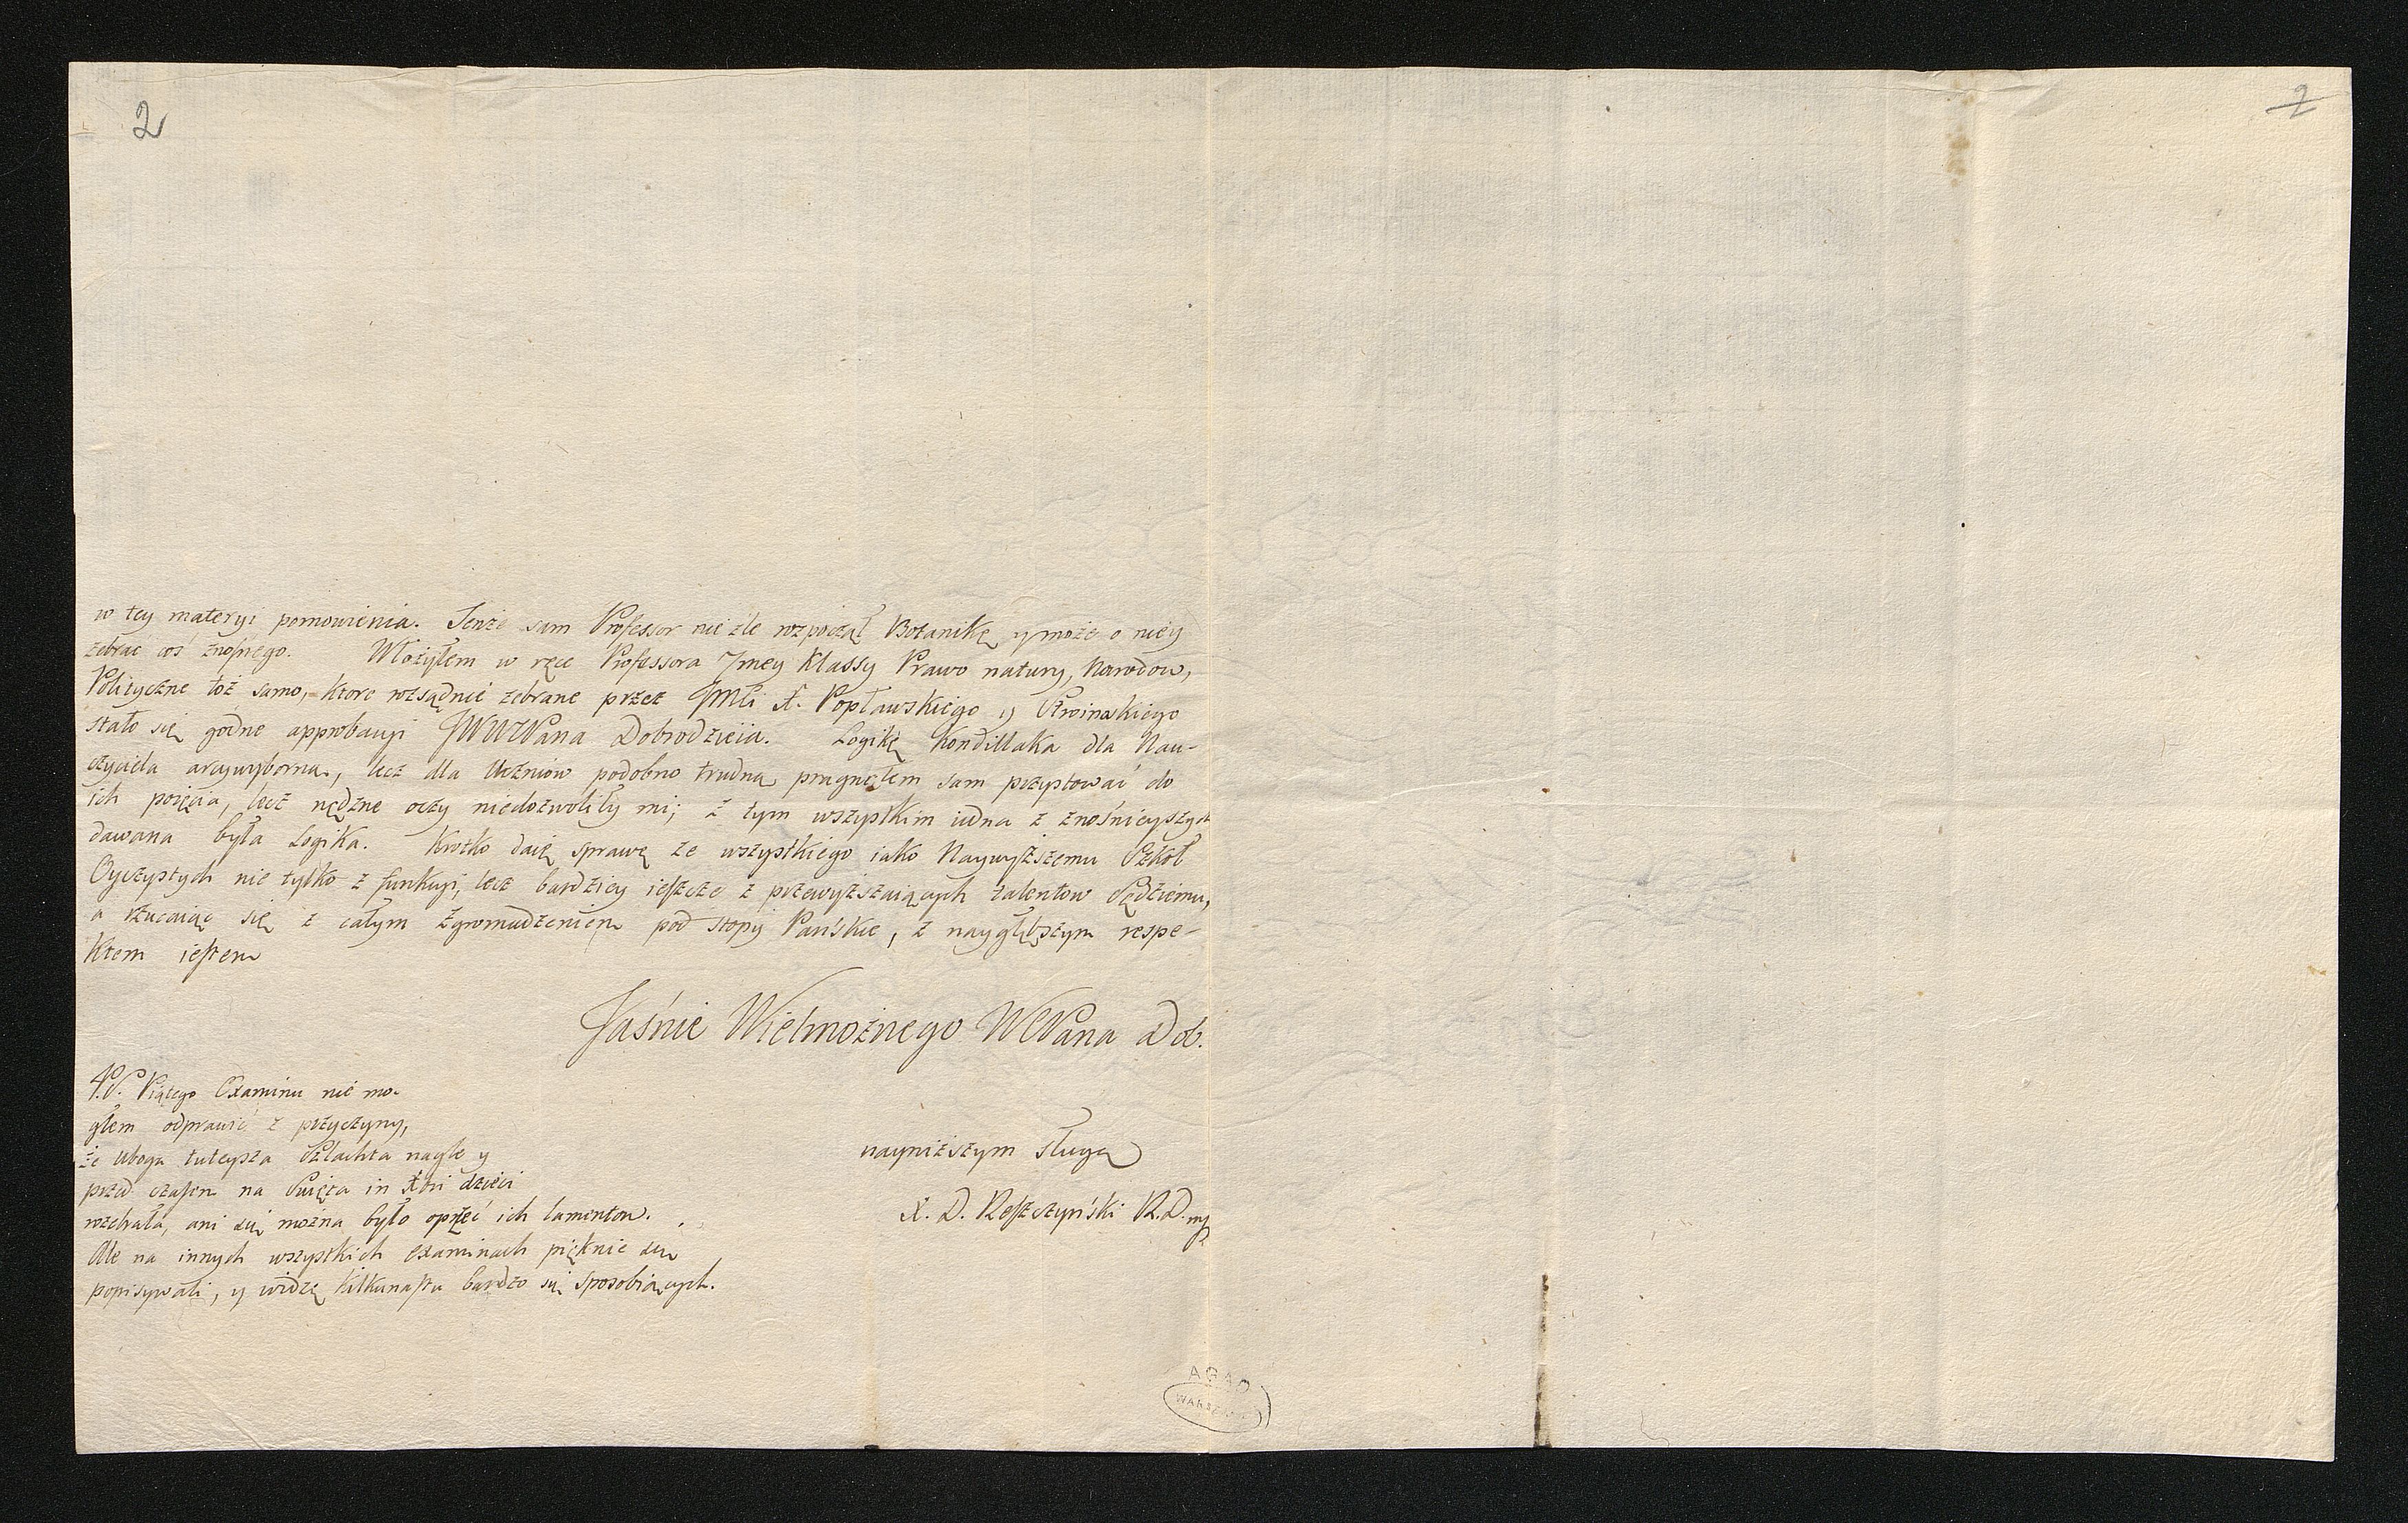 2
2
w tey materyi pomowienia. Tenże sam Professor nie źle rozpoczął Botanikę y może o niey
zebrać coś znośnego. Włożyłem w ręce Professora 7mey Klassy Prawo natury, Narodow,
Polityczne toż samo, ktore rozsądnie zebrane przez JMći X. Popławskiego y Stroinskiego
stało się godne approbacyi JWWPana Dobrodzieia. Logikę Kondillaka dla Nau-
czyciela arcywyborną, lecz dla Uczniow podobno trudną pragnąłem sam przystować do
ich poięcia, lecz nędzne oczy niedozwoliły mi; z tym wszystkim iedna z znośnieyszych
dawana była Logika. Krotko daię sprawę ze wszystkiego iako Naywyższemu Szkoł
Oyczystych nie tylko z funkcyi, lecz bardziey ieszcze z przewyższaiących talentow Sędziemu,
a rzucaiąc się z całym Zgromadzeniem pod stopy Pańskie, z naygłębszym respe-
ktem iestem
Jaśnie Wielmożnego WWPana Dob.
P.S. Piątego Examinu nie mo-
głem odprawić z przyczyny,
że uboga tuteysza Szlachta nagle y
przed czasem na Swięta in Xbri dzieci
rozebrała, ani się można było oprzeć ich lamentom.
Ale na innych wszystkich examinach pięknie się
popisywali, y widzę kilkunastu bardzo się sposobiących.
nayniższym sługą
X. D. Reszczyński R.D. mp
AGAD
WARSZAWA